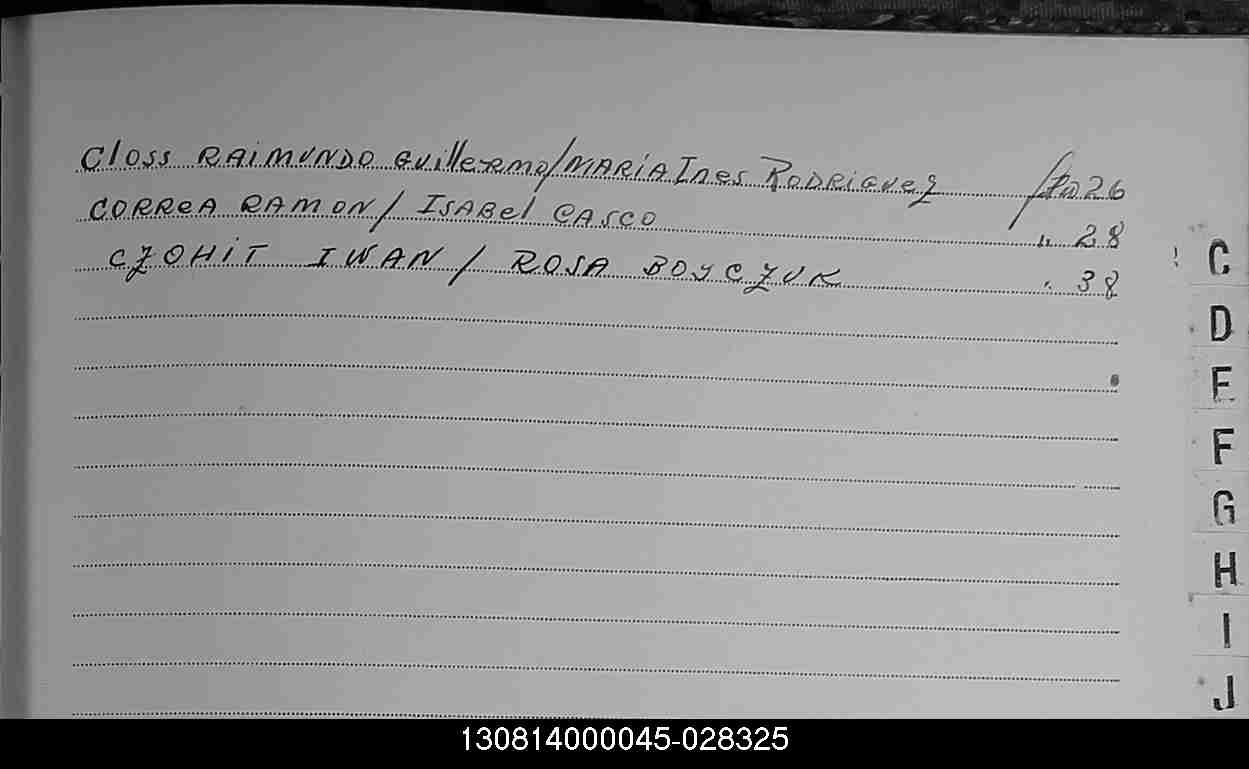 Closs RAiMUNDO Guillermo/MARiA Ines RODRiGuez 26
CORReA RAMON/ ISABel CASCO " 28
CZOHiT IWAN / ROSA BOYCZUK " 38
C
D
E
F
G
H
I
J
130814000045-028325